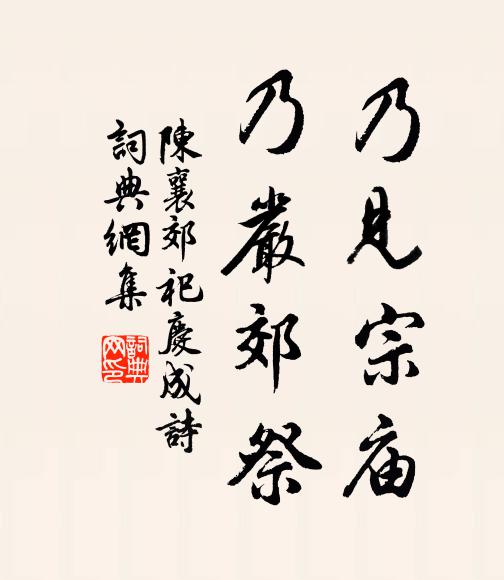 乃見宗庙
乃嚴郊祭
陳襄郊祀慶成詩
詞典網集
詞典网印